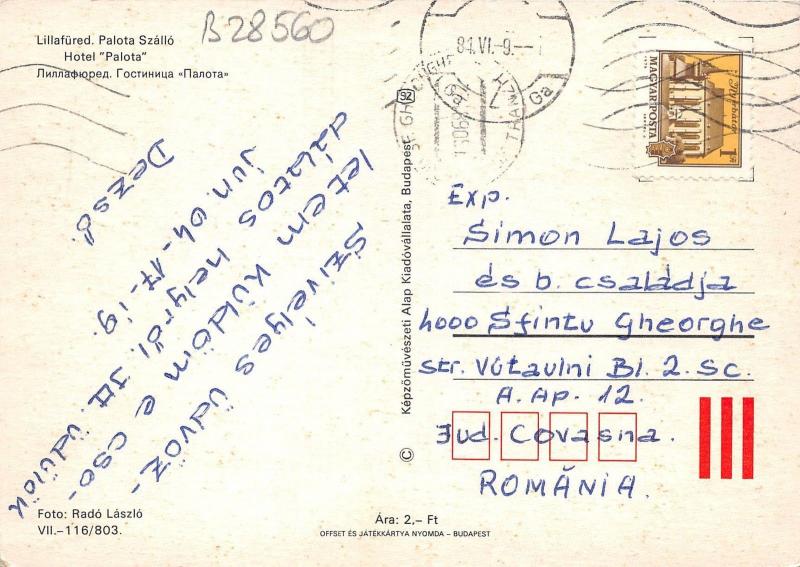 B28560
Lillafüred. Palota Szálló
Hotel "Palota"
Лиллафюред. Гостиница «Палота»
84.VI.-9.
MAGYAR POSTA
1 Ft
Szívelyes üdvöz-
letem küldöm e cso-
dálatos helyről. Itt üdülök
jun. 04-17-ig.
Dezső.
Képzőművészeti Alap Kiadóvállalata, Budapest
Exp.
Simon Lajos
és b. családja
4000 Sfintu Gheorghe
str. Vùtaulni Bl. 2. Sc.
A. Ap. 12.
Jud. Covasna.
ROMÂNIA.
Foto: Radó László
VII.–116/803.
Ára: 2,– Ft
OFFSET ÉS JÁTÉKKÁRTYA NYOMDA – BUDAPEST